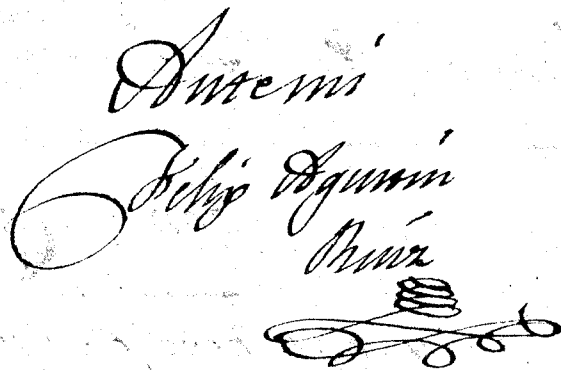 Antemi
Felip Agustin
Ruiz